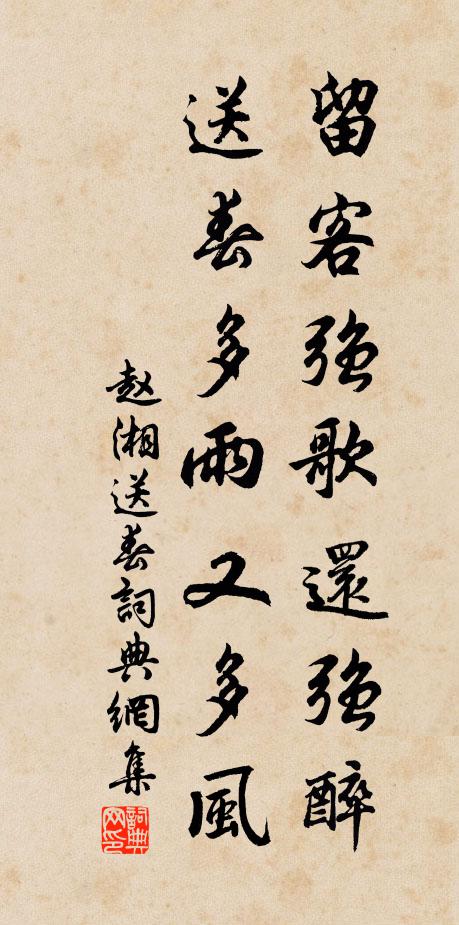 留客強歌還強醉
送春多雨又多風
赵湘送春詞典網集
詞典
网印